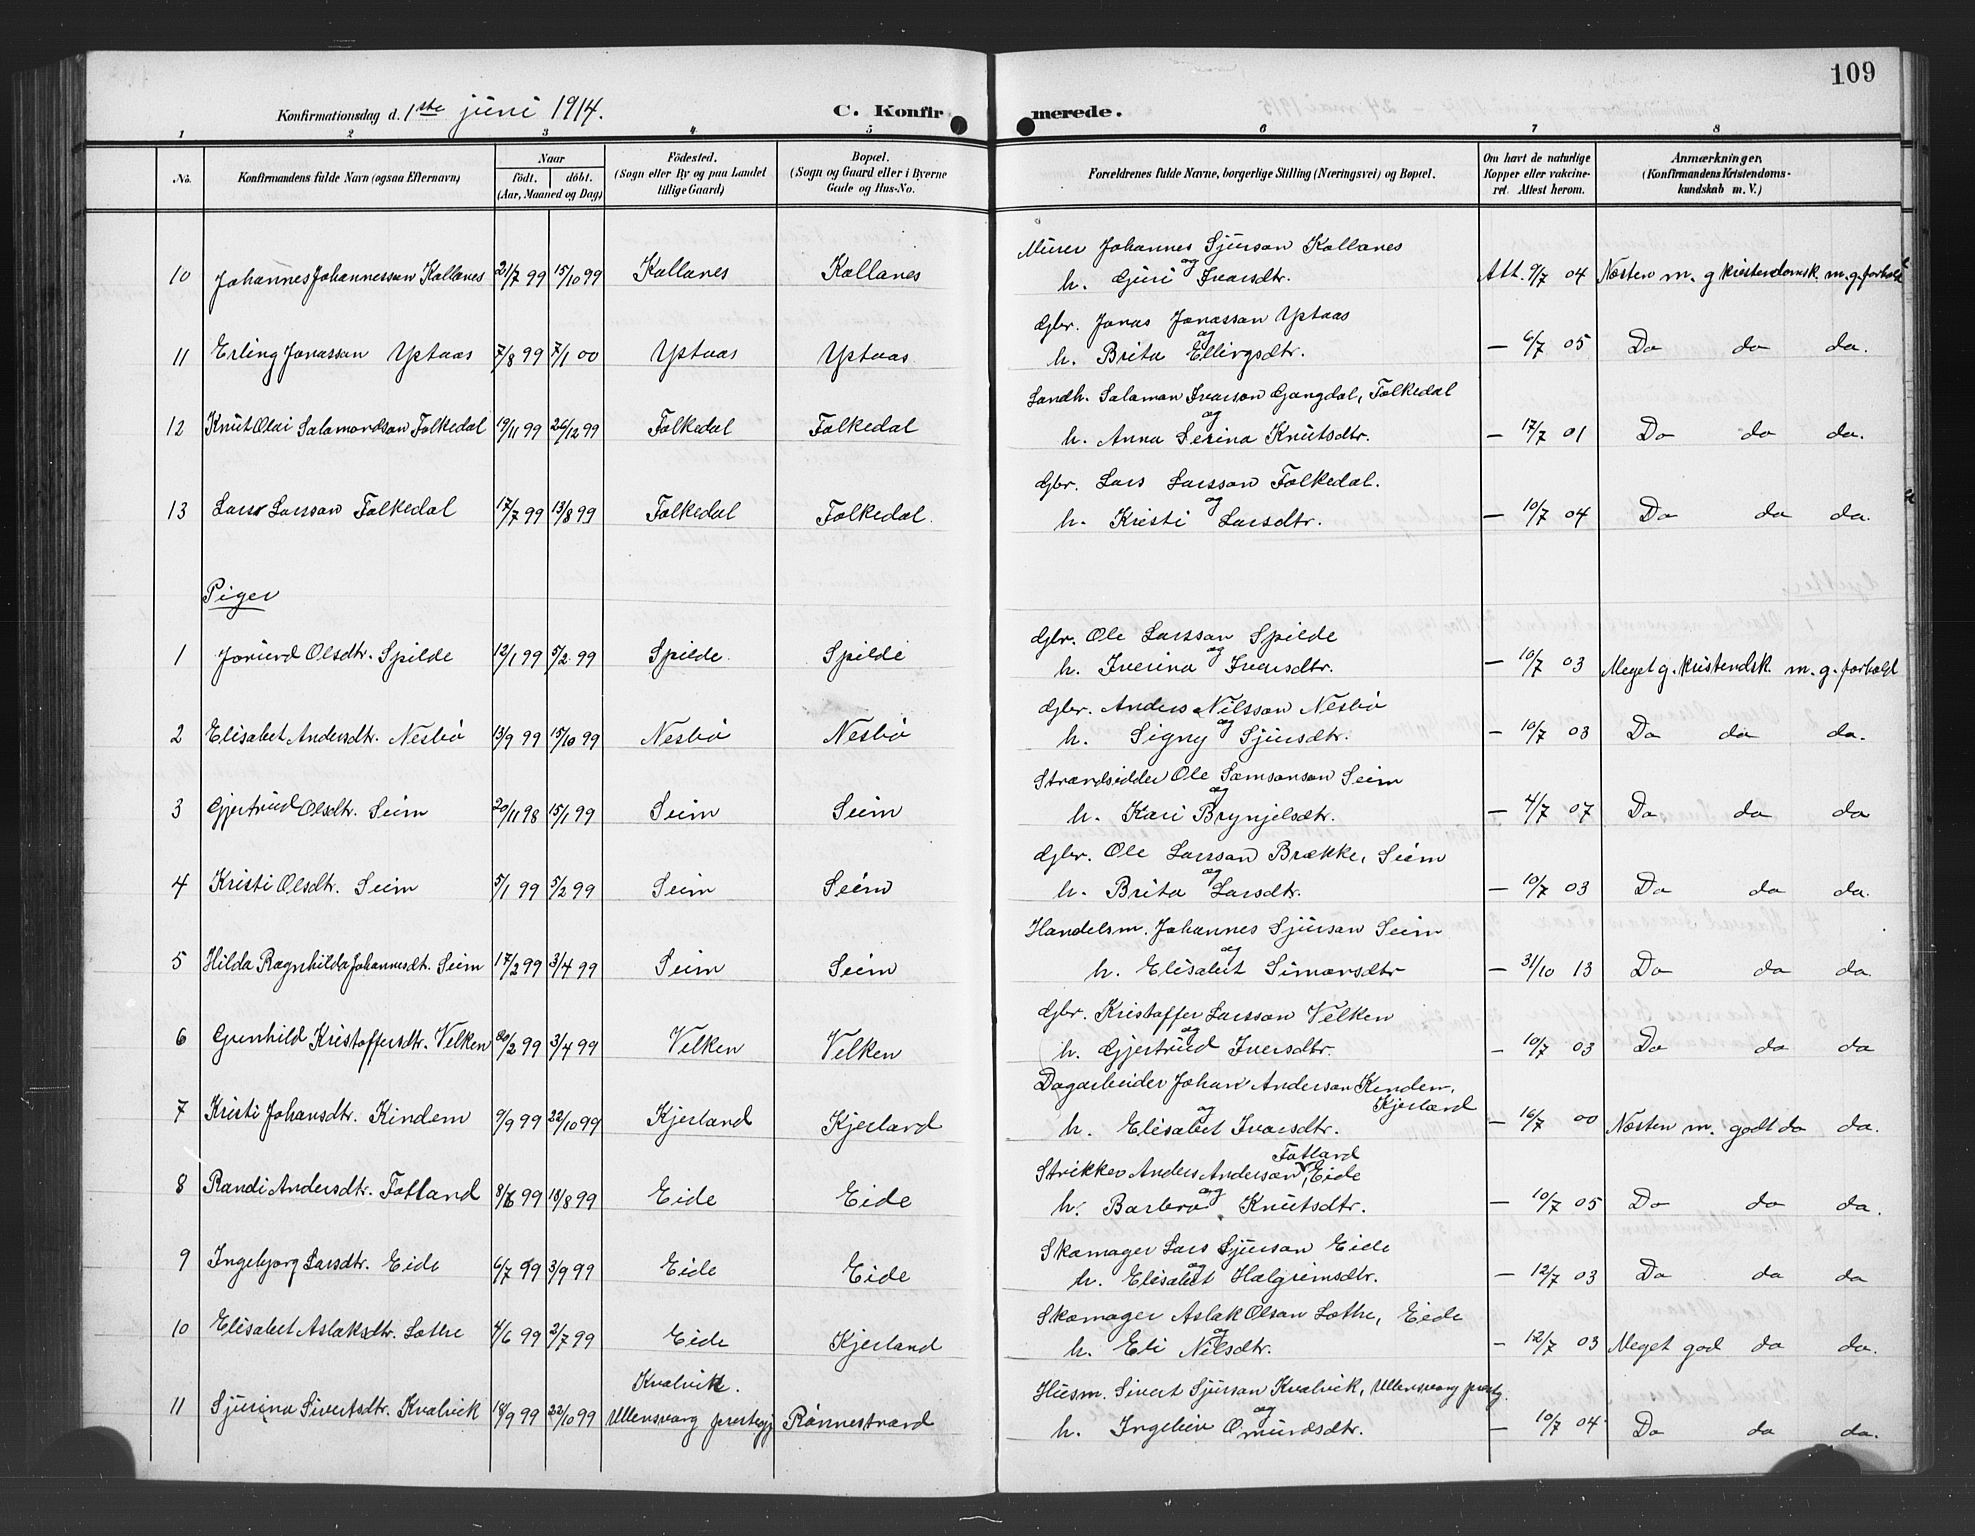 109
Konfirmationsdag d. 1ste juni 1914. C. Konfirmerede.
1 2 3 4 5 6 7 8
No. Konfirmandens fulde Navn (ogsaa Efternavn). Naar født. døbt. (Aar, Maaned og Dag) Fødested. (Sogn eller By og paa Landet tillige Gaard) Bopæl. (Sogn og Gaard eller i Byerne Gade og Hus-No. Forældrenes fulde Navne, borgerlige Stilling (Næringsvei) og Bopæl. Om havt de naturlige Kopper eller vakcineret. Attest herom. Anmærkninger, (Konfirmandens Kristendomskundskab m. V.)
Murer Johannes Sjursson Kollanes
10 Johannes Johannesson Kollanes 21/7 99 15/10 99 Kollanes Kollanes og h. Guri Ivarsdtr. Att. 9/7 04 Næsten m. g kristendomsk. m. g. forhold
Gbr. Jonas Jonassan Ystaas
11 Erling Jonassan Ystaas 7/8 99 7/1 00 Ystaas Ystaas og h. Brita Ellingsdtr. — 6/7 05 Do do do.
Landh. Salamon Ivarson Gangdal, Folkedal
12 Knut Olai Salamonsson Folkedal 19/11 99 26/12 99 Folkedal Folkedal og h. Anna Serina Knutsdtr. — 17/7 01 Do do do.
Gbr. Lars Larsson Folkedal.
13 Lars Larsson Folkedal 17/7 99 13/8 99 Folkedal Folkedal. og h. Kristi Larsdtr. — 10/7 04 Do do do.
Piger
Gbr. Ole Larsson Spilde
1 Jorund Olsdtr. Spilde 12/1 99 5/2 99 Spilde. Spilde og h. Iverina Ivarsdtr. — 10/7 03 Meget g. kristendsk. m. g. forhold
Gbr. Anders Nilsson Nesbø
2 Elisabet Andersdtr. Nesbø 13/9 99 15/10 99 Nesbø Nesbø og h. Signy Sjursdtr. — 10/7 03 Do do do.
Strandsidder Ole Samsonson Seim
3 Gjertrud Olsdtr. Seim 20/11 98 15/1 99 Seim Seim og h. Kari Brynjelsdtr. — 4/7 07 Do do do
Gbr. Ole Larsson Brække, Seim
4 Kristi Olsdtr. Seim 5/1 99 5/2 99 Seim Seim og h. Brita Larsdtr. — 10/7 03 Do do do.
Handelsm. Johannes Sjurson Seim
5 Hilda Ragnhilda Johannesdt. Seim 17/2 99 3/4 99 Seim Seim og h. Elisabet Simonsdtr — 31/10 13 Do do do.
Gbr. Kristoffer Larsson Velken
6 Gunhild Kristoffersdtr. Velken 20/2 99 3/4 99 Velken Velken og h. Gjertrud Iversdtr. — 10/7 03 Do do do
Dagarbeider Johan Anderson Kindem,
Kjerland
7 Kristi Johansdtr. Kindem 9/9 99 22/10 99 Kjerland Kjerland og h. Elisabet Ivarsdtr. — 16/7 00 Næsten m. godt do do.
Fotland
Strikker Anders Anderson, Eide
8 Randi Andersdtr. Fotland 8/6 99 18/8 99 Eide Eide og h. Barbro Knutsdtr. — 10/7 05 Do do do.
Skomager Lars Sjurson Eide
9 Ingebjorg Larsdtr. Eide 6/7 99 3/9 99 Eide Eide og h. Elisabet Halgrimsdtr. — 12/7 03 Do do do
Skomager Aslak Olson Lothe, Eide
10 Elisabet Aslaksdtr. Lothe 4/6 99 2/7 99 Eide Kjerland og h. Eli Nilsdtr. — 12/7 03 Meget god do do.
Kvalvik. Husm. Sivert Sjurson Kvalvik, Ullensvang prestg.
11 Sjurina Sivertsdtr. Kvalvik 18/9 99 22/10 99 Ullensvang prestegj Rønnestrand og h. Ingebor Omundsdtr. — 10/7 04 Do do do.